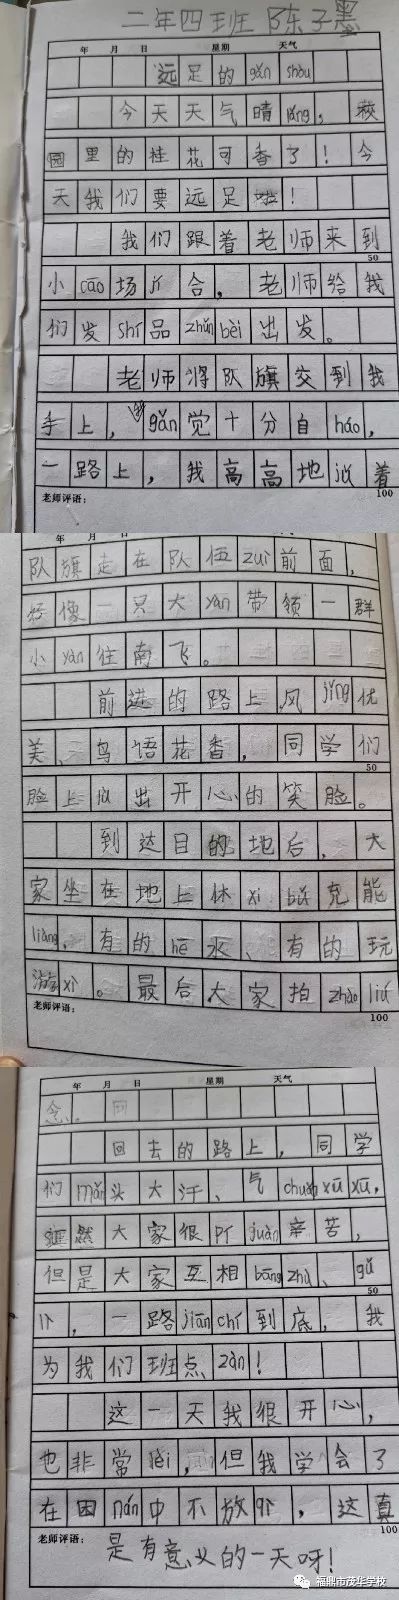 二年四班 陈子墨
年 月 日 星期 天气
远足的gǎn shòu
今天天气晴lǎng，校
园里的桂花可香了！今
天我们要远足啦！
我们跟着老师来到
50
小cāo场jí合，老师给我
们发shí品zhǔn bèi出发。
老师将队旗交到我
手上，我gǎn觉十分自háo，
一路上，我高高地jǔ着
老师评语：
100
年 月 日
队旗走在队伍zuì前面，
好像一只大yàn带领一群
小yàn往南飞。
前进的路上，风jǐng优
美、鸟语花香，同学们
50
脸上以出开心的笑脸。
到达目的地后，大
家坐在地上休xi bǔ充能
liàng，有的hē水、有的玩
游xì。最后大家拍zhào liú
老师评语：
100
年 月 日 星期 天气
念。回
回去的路上，同学
们mǎn头大汗、气chuǎn xū xū，
虽然大家很pí juàn辛苦，
但是大家互相bāng zhù、gǔ
50
lì，一路jiān chí到底，我
为我们班点zàn！
这一天我很开心，
也非常lèi，但我学会了
在困nán中不放qì，这真
100
老师评语：是有意义的一天呀！
福鼎市茂华学校